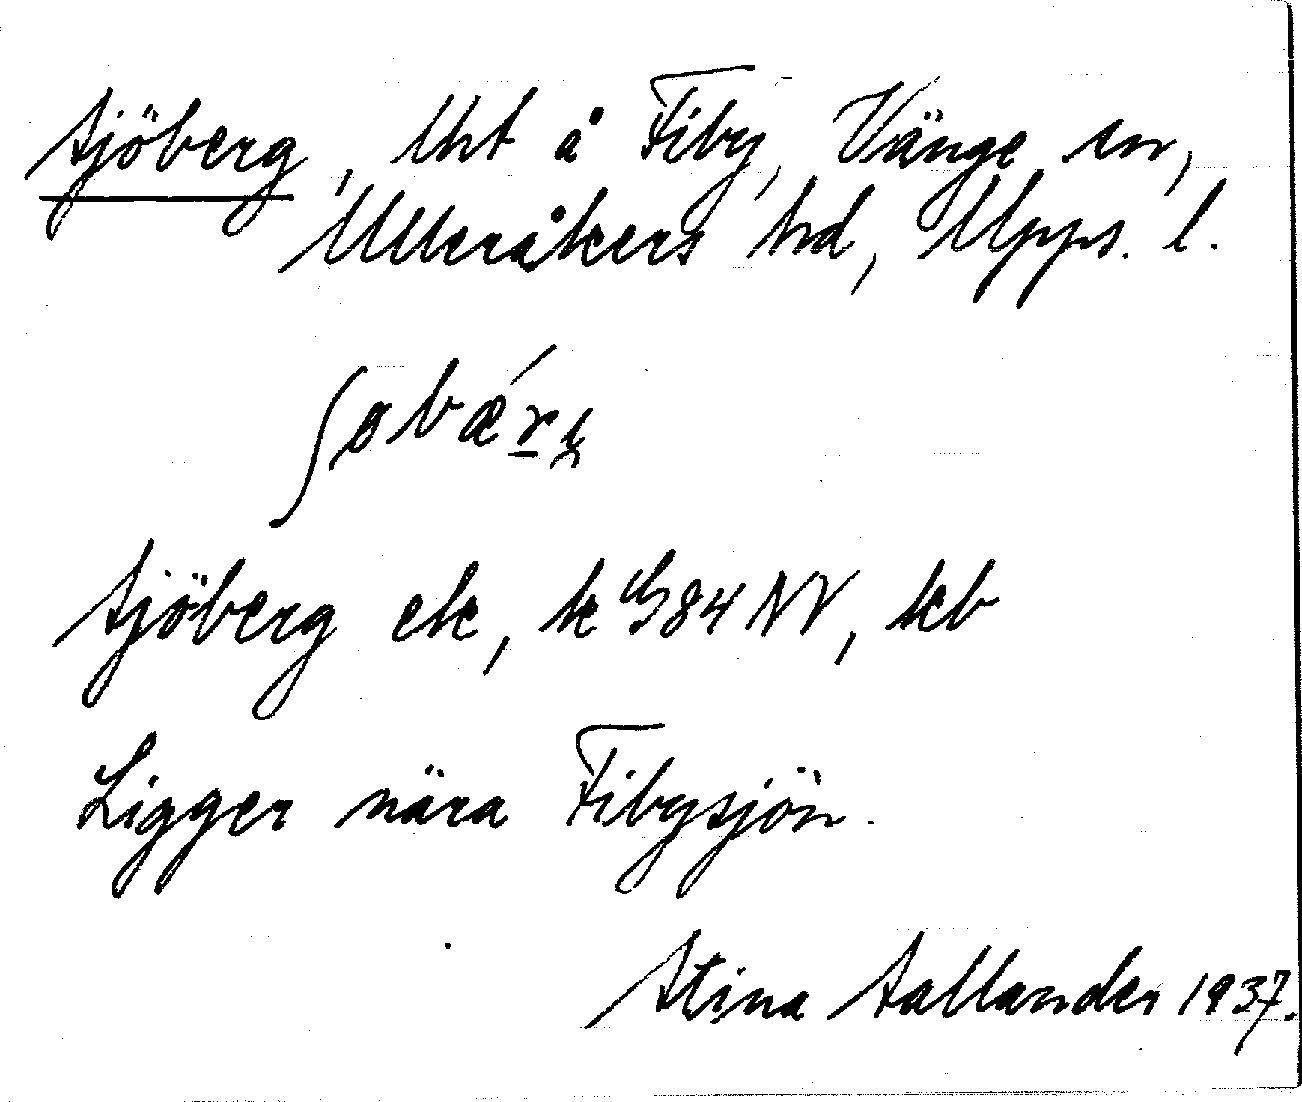 Sjöberg, lht å Fiby, Vänge sn,
Ulleråkers hd, Upps. l.
Sjöberg ek, k G84 NV, kb
Ligger nära Fibysjön.
Stina Sallander 1937.